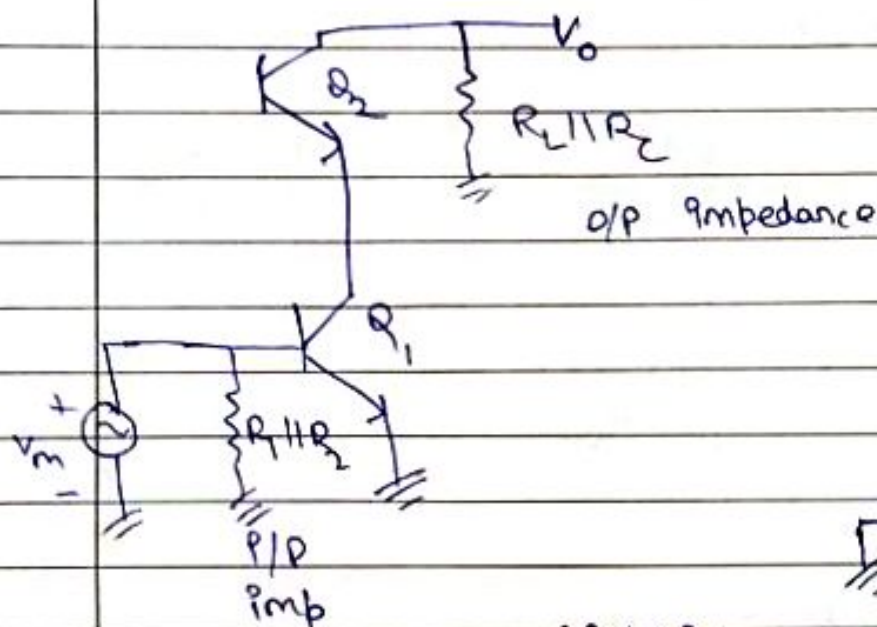 V₀
Q₂
R_L||R_C
O/P Impedance
Q₁
+
V_in
-
R₁||R₂
I/P
imp